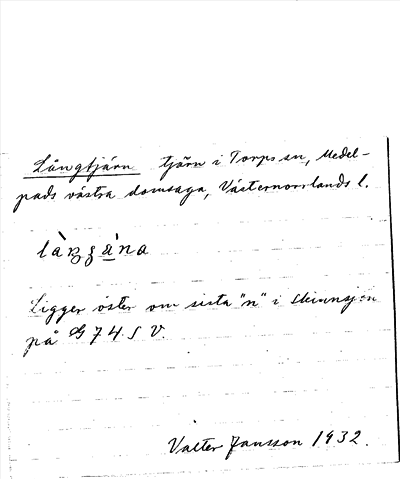 Långtjärn tjärn i Torps sn, Medel-
pads västra domsaga, Västernorrlands l.
Ligger öster om sista "n" i Skinnsjön
på G 74. S V.
Valter Jansson 1932.